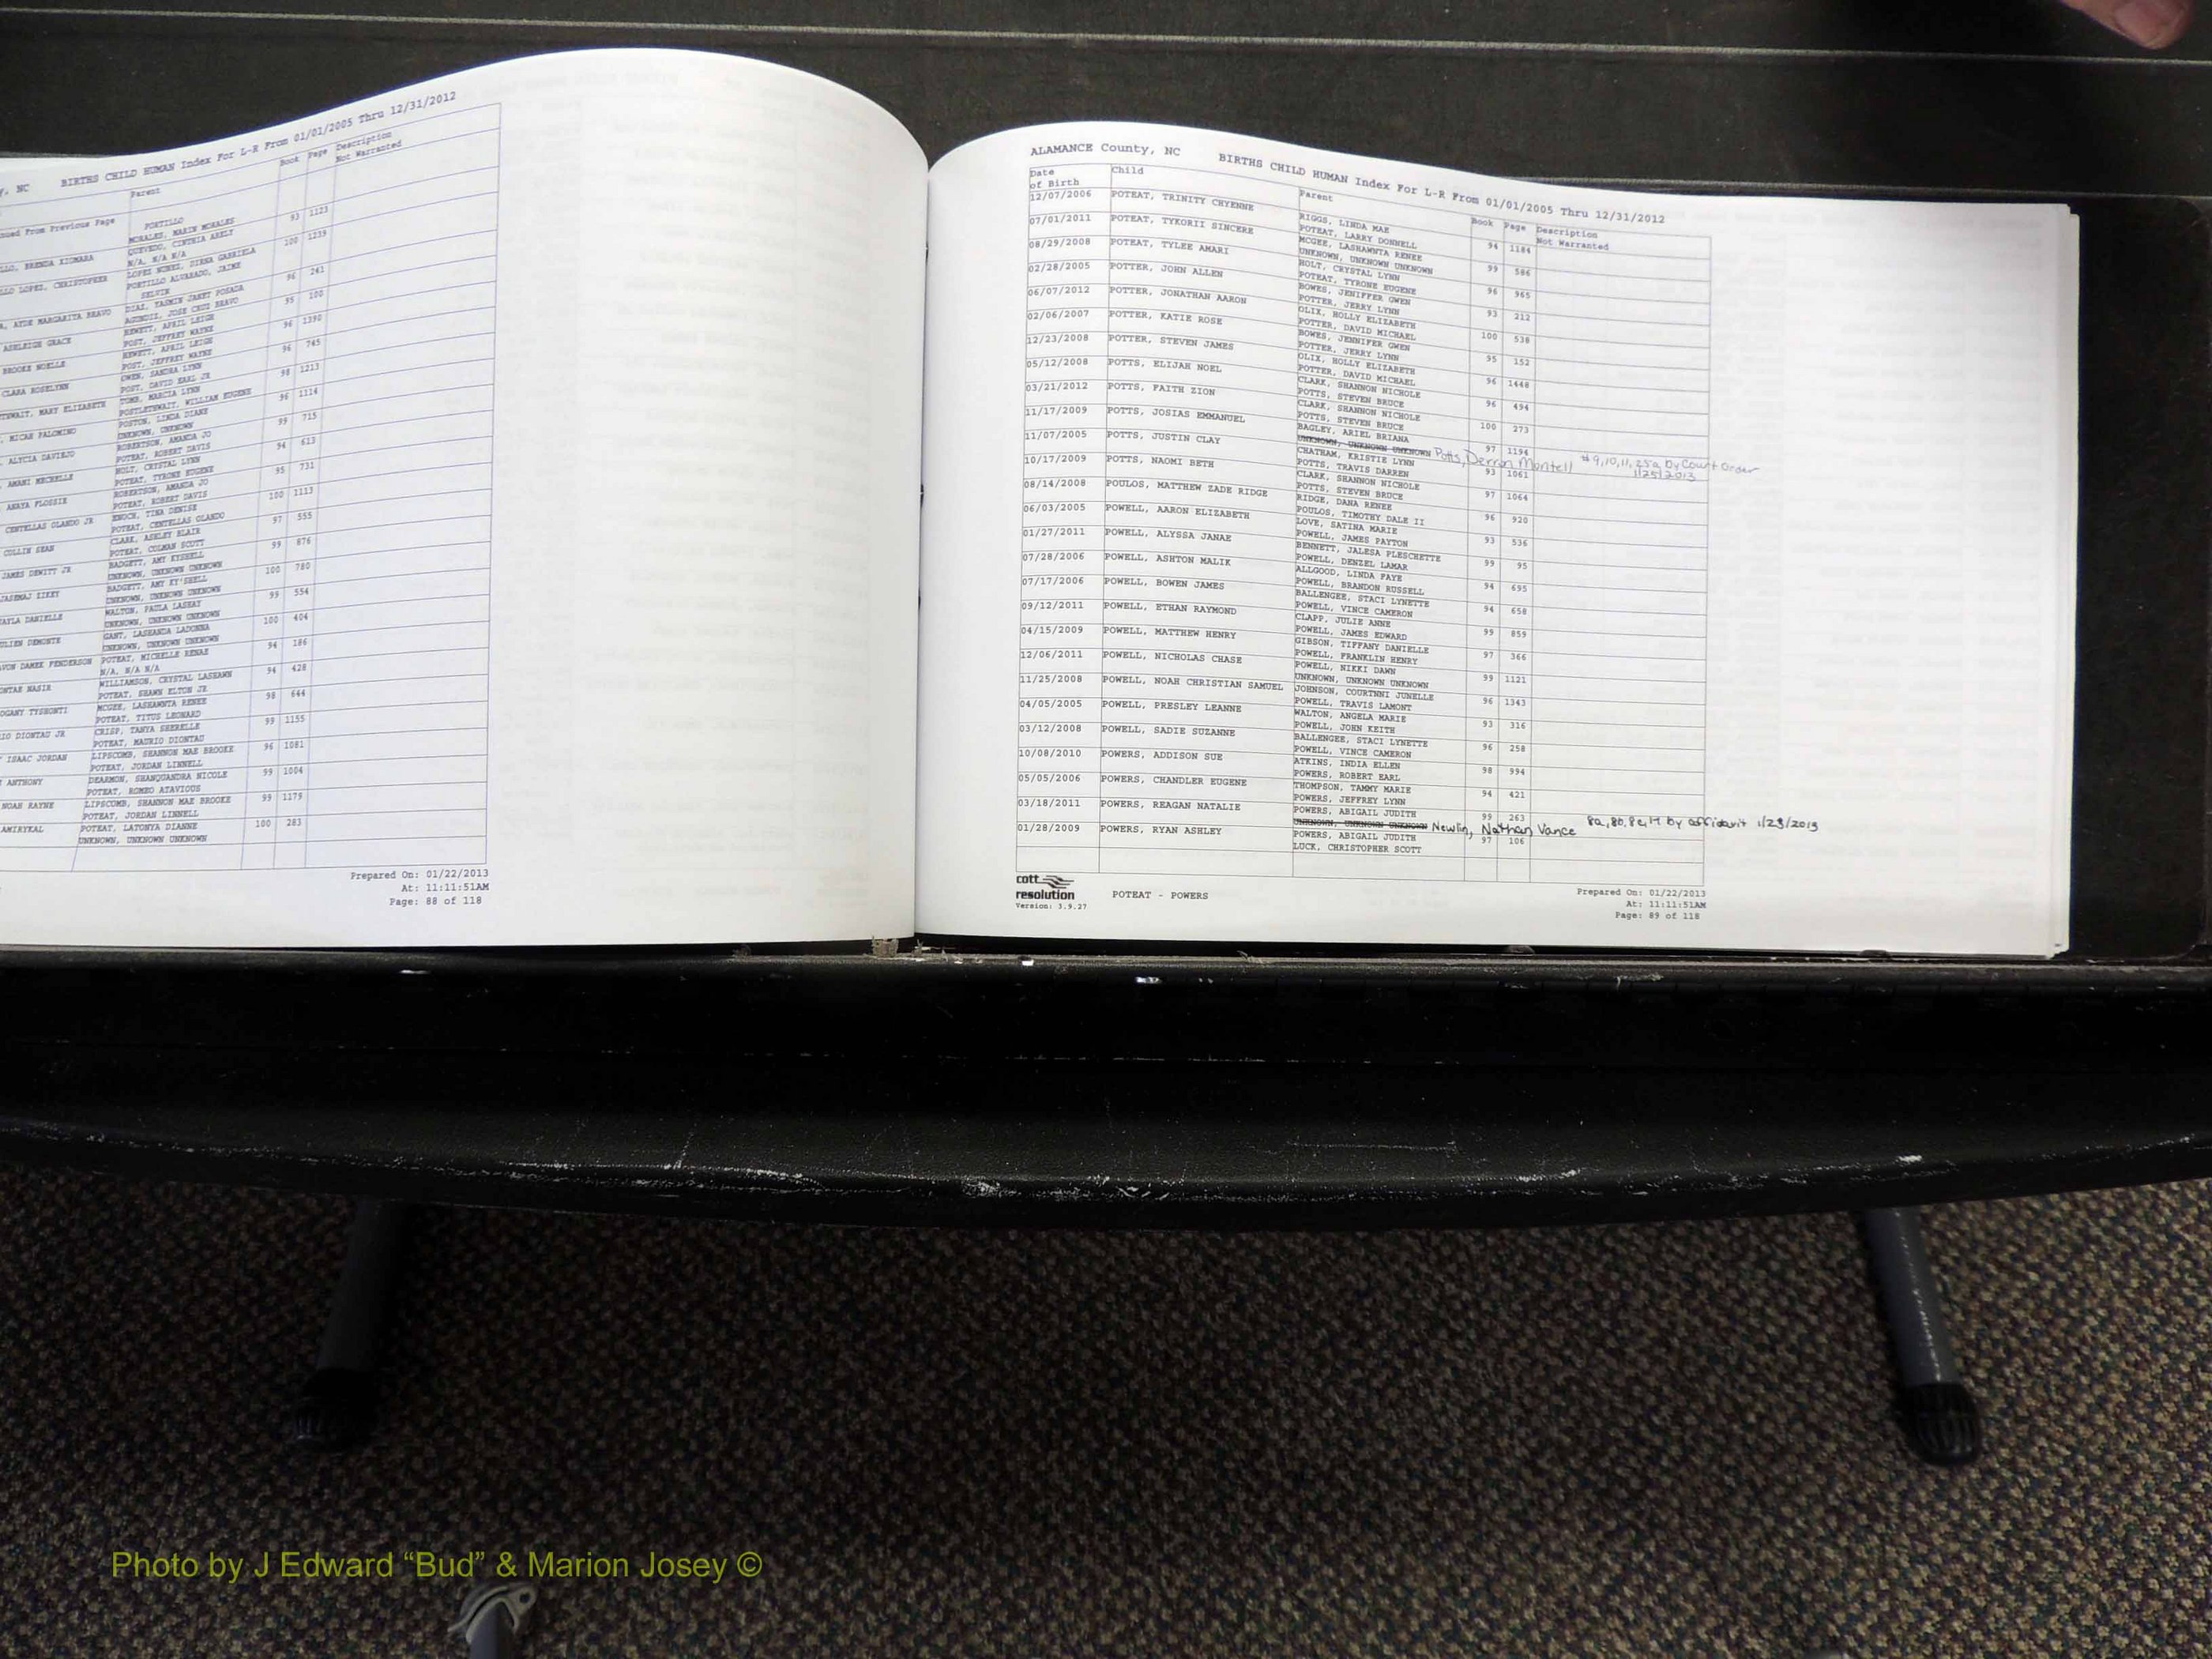 y, NC BIRTHS CHILD HUMAN Index For L-R From 01/01/2005 Thru 12/31/2012
Parent Book Page Description
Not Warranted
nued From Previous Page PORTILLO
LLO, BRENDA XIOMARA MORALES, MARIN MORALES 93 1123
QUEVEDO, CINTHIA ARELY
LLO LOPEZ, CHRISTOPHER N/A, N/A N/A 100 1239
LOPEZ NUNEZ, DIRNA GABRIELA
PORTILLO ALVARADO, JAIME
SELVIN
A, AYDE MARGARITA BRAVO DIAZ, YASMIN JANET POSADA 96 241
AGUNDIZ, JOSE CRUZ BRAVO
ASHLEIGH GRACE HEWETT, APRIL LEIGH 95 100
POST, JEFFREY WAYNE
BROOKE NOELLE HEWETT, APRIL LEIGH 96 1390
POST, JEFFREY WAYNE
CLARA ROSELYNN OWEN, SANDRA LYNN 96 745
POST, DAVID EARL JR
THWAIT, MARY ELIZABETH TOMB, MARCIA LYNN 98 1213
POSTLETHWAIT, WILLIAM EUGENE
, MICAH PALOMINO POSTON, LINDA DIANE 96 1114
UNKNOWN, UNKNOWN
ALYCIA DAVIEJO ROBERTSON, AMANDA JO 99 715
POTEAT, ROBERT DAVIS
AMANI MECHELLE HOLT, CRYSTAL LYNN 94 613
POTEAT, TYRONE EUGENE
ANAYA FLOSSIE ROBERTSON, AMANDA JO 95 731
POTEAT, ROBERT DAVIS
CENTELLAS OLANDO JR ENOCH, TINA DENISE 100 1113
POTEAT, CENTELLAS OLANDO
COLLIN SEAN CLARK, ASHLEY BLAIR 97 555
POTEAT, COLMAN SCOTT
JAMES DEWITT JR BADGETT, AMY KYSHELL 99 876
UNKNOWN, UNKNOWN UNKNOWN
BADGETT, AMY KY'SHELL 100 780
UNKNOWN, UNKNOWN UNKNOWN
AYLA DANIELLE WALTON, PAULA LASHAY 99 554
UNKNOWN, UNKNOWN UNKNOWN
ULIEN DEMONTE GANT, LASHANDA LADONNA 100 404
UNKNOWN, UNKNOWN UNKNOWN
VON DAMEK FENDERSON POTEAT, MICHELLE RENAE 94 186
N/A, N/A N/A
ONTAE NASIR WILLIAMSON, CRYSTAL LASHAWN 94 428
POTEAT, SHAWN ELTON JR
OGANY TYSHONTI MCGEE, LASHAWNTA RENEE 98 644
POTEAT, TITUS LEONARD
IO DIONTAU JR CRISP, TANYA SHERELLE 99 1155
POTEAT, MAURIO DIONTAU
ISAAC JORDAN LIPSCOMB, SHANNON MAE BROOKE 96 1081
POTEAT, JORDAN LINNELL
ANTHONY DEARMON, SHANQUANDRA NICOLE 99 1004
POTEAT, ROMEO ATAVIOUS
NOAH RAYNE LIPSCOMB, SHANNON MAE BROOKE 99 1179
POTEAT, JORDAN LINNELL
AMIRYKAL POTEAT, LATONYA DIANNE 100 283
UNKNOWN, UNKNOWN UNKNOWN
Prepared On: 01/22/2013
At: 11:11:51AM
Page: 88 of 118
ALAMANCE County, NC BIRTHS CHILD HUMAN Index For L-R From 01/01/2005 Thru 12/31/2012
Date Child Parent Book Page Description
of Birth Not Warranted
12/07/2006 POTEAT, TRINITY CHYENNE RIGGS, LINDA MAE 94 1184
POTEAT, LARRY DONNELL
07/01/2011 POTEAT, TYKORII SINCERE MCGEE, LASHAWNTA RENEE 99 586
UNKNOWN, UNKNOWN UNKNOWN
08/29/2008 POTEAT, TYLEE AMARI HOLT, CRYSTAL LYNN 96 965
POTEAT, TYRONE EUGENE
02/28/2005 POTTER, JOHN ALLEN BOWES, JENIFFER GWEN 93 212
POTTER, JERRY LYNN
06/07/2012 POTTER, JONATHAN AARON OLIX, HOLLY ELIZABETH 100 538
POTTER, DAVID MICHAEL
02/06/2007 POTTER, KATIE ROSE BOWES, JENNIFER GWEN 95 152
POTTER, JERRY LYNN
12/23/2008 POTTER, STEVEN JAMES OLIX, HOLLY ELIZABETH 96 1448
POTTER, DAVID MICHAEL
05/12/2008 POTTS, ELIJAH NOEL CLARK, SHANNON NICHOLE 96 494
POTTS, STEVEN BRUCE
03/21/2012 POTTS, FAITH ZION CLARK, SHANNON NICHOLE 100 273
POTTS, STEVEN BRUCE
11/17/2009 POTTS, JOSIAS EMMANUEL BAGLEY, ARIEL BRIANA 97 1194
UNKNOWN, UNKNOWN UNKNOWN Potts, Derron Montell #9,10,11,25a by Court Order
1/25/2013
11/07/2005 POTTS, JUSTIN CLAY CHATHAM, KRISTIE LYNN 93 1061
POTTS, TRAVIS DARREN
10/17/2009 POTTS, NAOMI BETH CLARK, SHANNON NICHOLE 97 1064
POTTS, STEVEN BRUCE
08/14/2008 POULOS, MATTHEW ZADE RIDGE RIDGE, DANA RENEE 96 920
POULOS, TIMOTHY DALE II
06/03/2005 POWELL, AARON ELIZABETH LOVE, SATINA MARIE 93 536
POWELL, JAMES PAYTON
01/27/2011 POWELL, ALYSSA JANAE BENNETT, JALESA PLESCHETTE 99 95
POWELL, DENZEL LAMAR
07/28/2006 POWELL, ASHTON MALIK ALLGOOD, LINDA FAYE 94 695
POWELL, BRANDON RUSSELL
07/17/2006 POWELL, BOWEN JAMES BALLENGEE, STACI LYNETTE 94 658
POWELL, VINCE CAMERON
09/12/2011 POWELL, ETHAN RAYMOND CLAPP, JULIE ANNE 99 859
POWELL, JAMES EDWARD
04/15/2009 POWELL, MATTHEW HENRY GIBSON, TIFFANY DANIELLE 97 366
POWELL, FRANKLIN HENRY
12/06/2011 POWELL, NICHOLAS CHASE POWELL, NIKKI DAWN 99 1121
UNKNOWN, UNKNOWN UNKNOWN
11/25/2008 POWELL, NOAH CHRISTIAN SAMUEL JOHNSON, COURTNNI JUNELLE 96 1343
POWELL, TRAVIS LAMONT
04/05/2005 POWELL, PRESLEY LEANNE WALTON, ANGELA MARIE 93 316
POWELL, JOHN KEITH
03/12/2008 POWELL, SADIE SUZANNE BALLENGEE, STACI LYNETTE 96 258
POWELL, VINCE CAMERON
10/08/2010 POWERS, ADDISON SUE ATKINS, INDIA ELLEN 98 994
POWERS, ROBERT EARL
05/05/2006 POWERS, CHANDLER EUGENE THOMPSON, TAMMY MARIE 94 421
POWERS, JEFFREY LYNN
03/18/2011 POWERS, REAGAN NATALIE POWERS, ABIGAIL JUDITH 99 263
UNKNOWN, UNKNOWN UNKNOWN Newlin, Nathan Vance 8a,8b,8c,17 by affidavit 1/23/2013
01/28/2009 POWERS, RYAN ASHLEY POWERS, ABIGAIL JUDITH 97 106
LUCK, CHRISTOPHER SCOTT
cott
resolution
Version: 3.9.27
POTEAT - POWERS
Prepared On: 01/22/2013
At: 11:11:51AM
Page: 89 of 118
Photo by J Edward “Bud” & Marion Josey ©